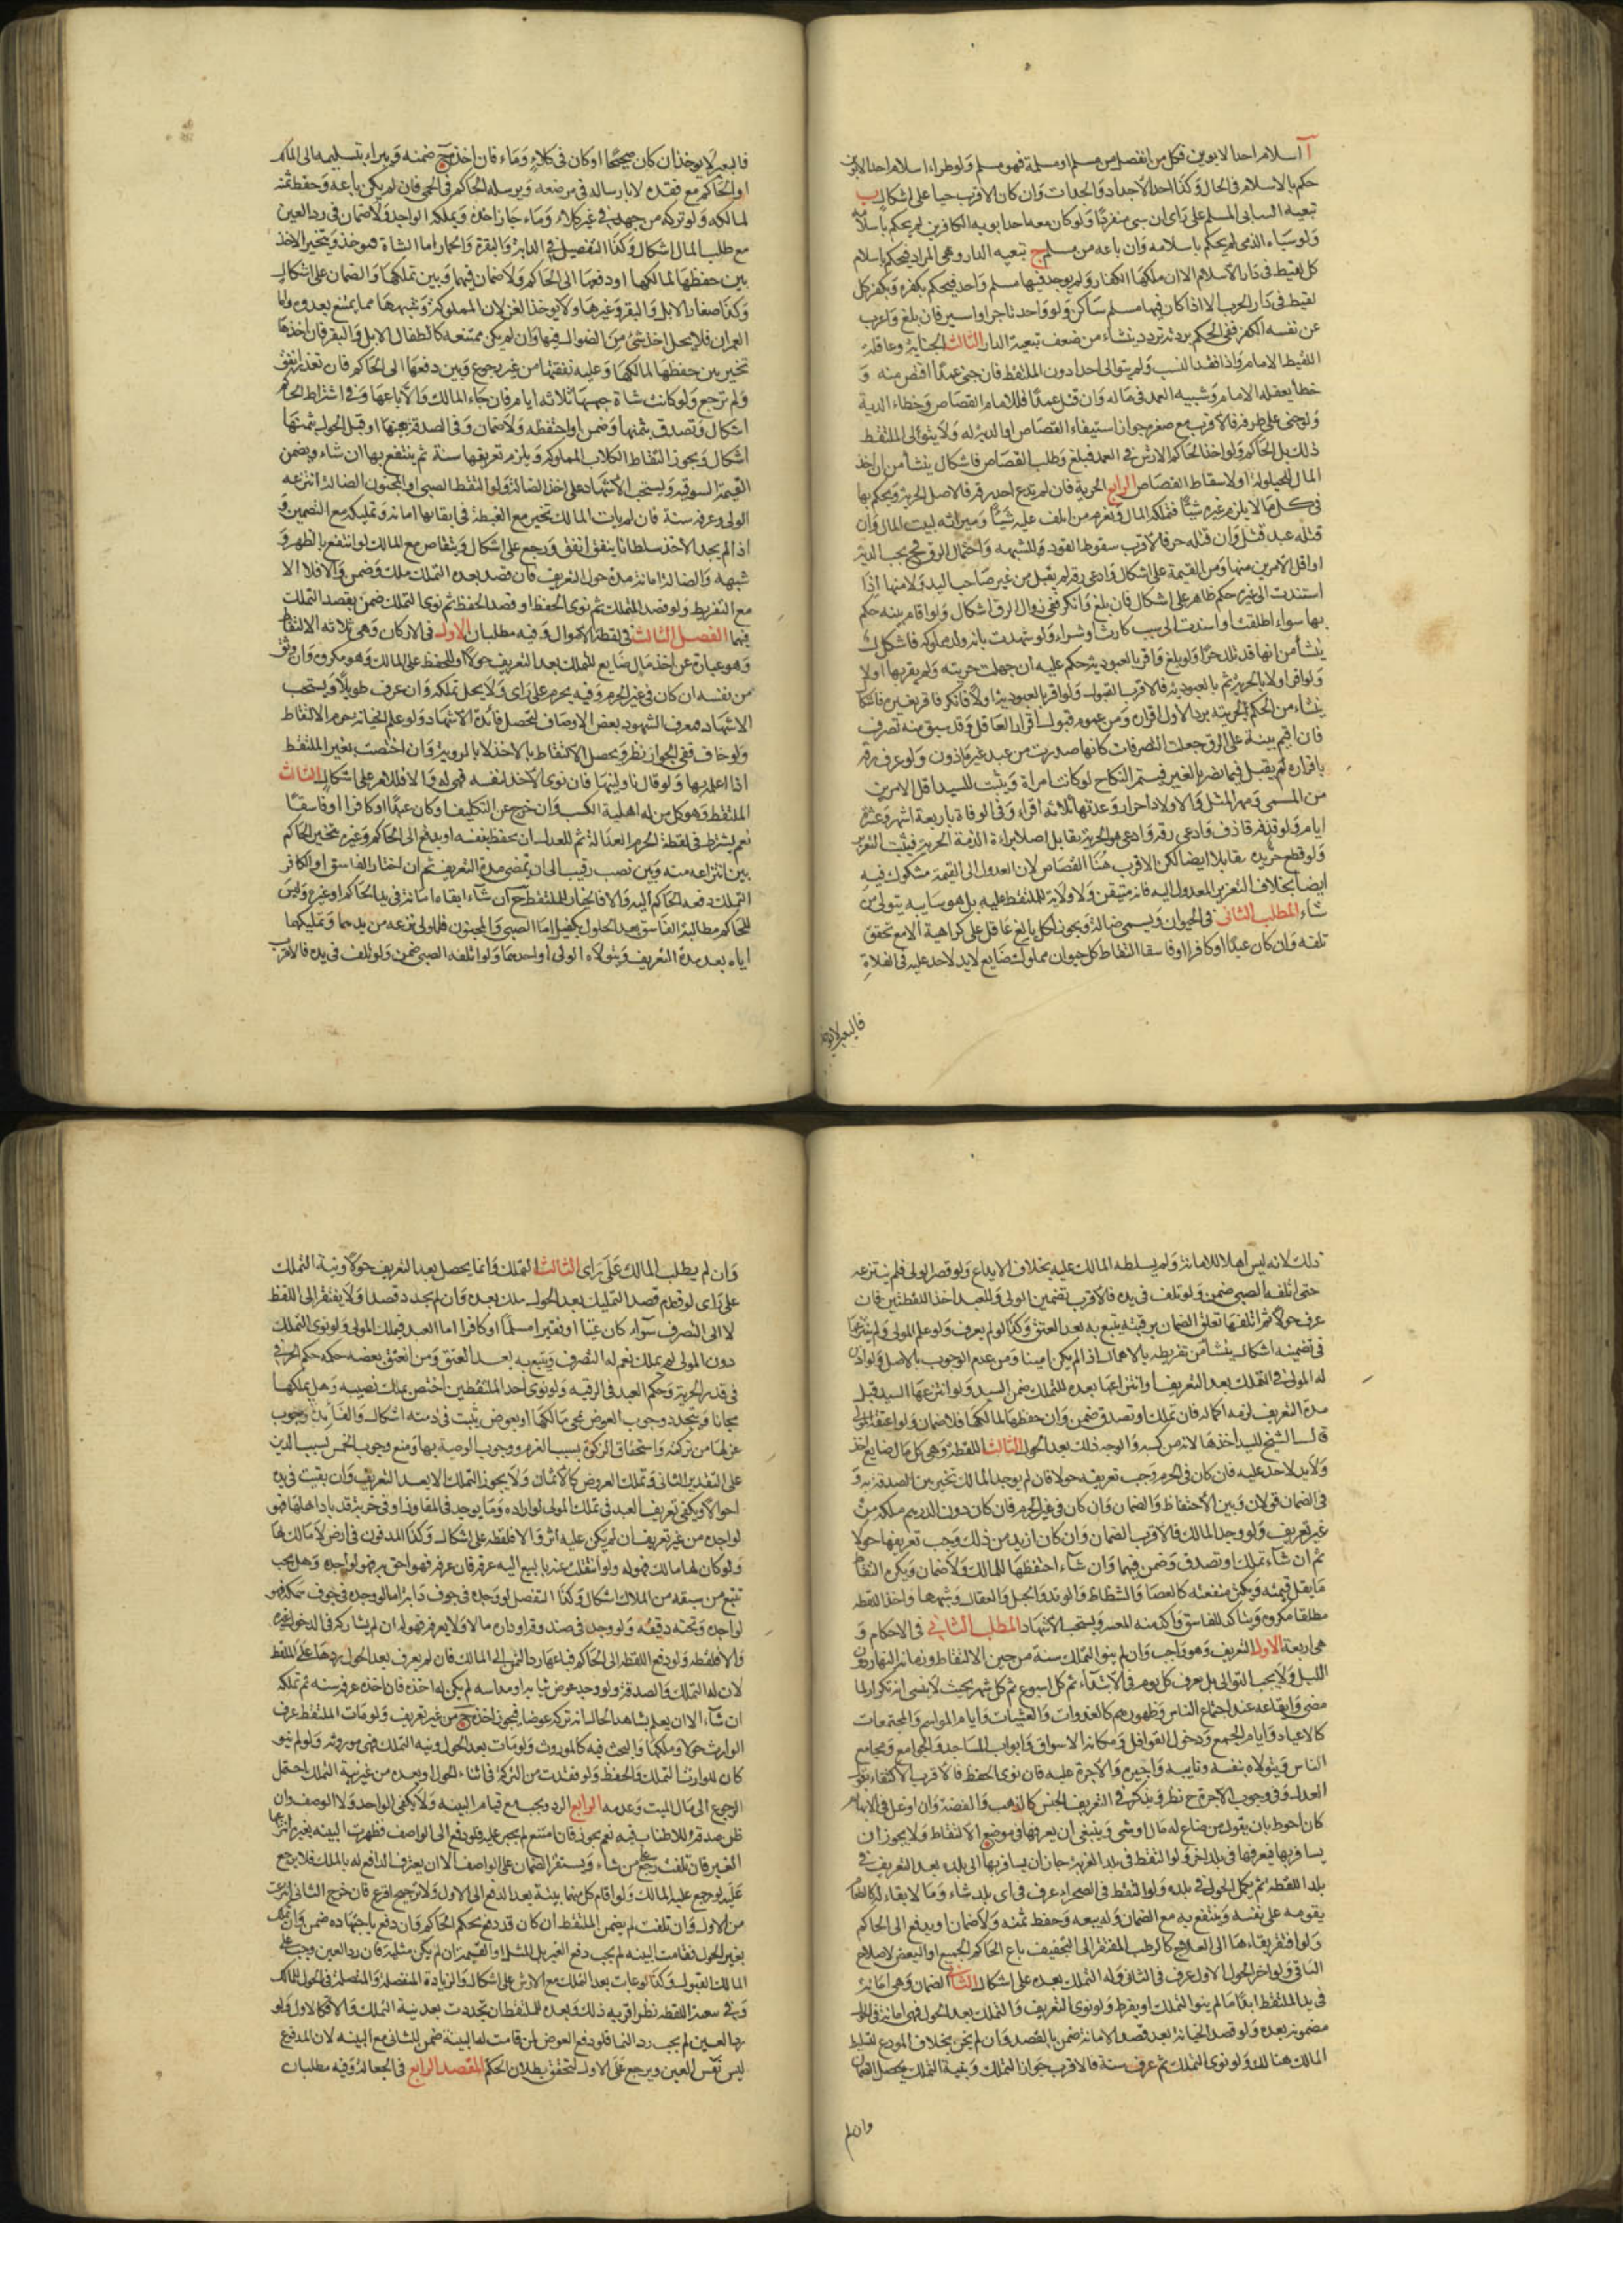 آ اسلام احد الابوين فكل من انفصل من مسلم او مسلمة فهو مسلم ولو طراء اسلام احد الابوين
حكم بالاسلام فى الحال وكذا احد الاجداد والجدات وان كان الاقرب حيا على اشكال ب
تبعيه السابى المسلم على راى ان سبى منفردا ولو كان معه احد ابويه الكافرين لم يحكم باسلامه
ولو سباه الذمى لم يحكم باسلامه وان باعه من مسلم ج تبعيه الدار وهى المراد فيحكم باسلام
كل لقيط فى دار الاسلام الا ان ملكها الكفار ولم يوجد فيها مسلم واحد فيحكم بكفره وبكفر كل
لقيط فى دار الحرب الا اذا كان فيها مسلم ساكن ولو واحد تاجر او اسير فان بلغ واعرب
عن نفسه الكفر ففى الحكم بردته تردد ينشاء من ضعف تبعية الدار الثالث الجناية وعاقلة
اللقيط الامام واذا فقد النسب ولم يتوالى احدا دون الملتقط فان جنى عمدا اقتص منه و
خطأ يعقله الامام وشبيه العمد فى ماله وان قتل عمدا فللامام القصاص وخطاء الدية
ولو جنى على طرفه فالاقرب مع صغره جواز استيفاء القصاص او الدية له ولا يتولى الملتقط
ذلك بل الحاكم ولو اخذ الحاكم الارش فى العمد فبلغ وطلب القصاص فاشكال ينشأ من ان اخذ
المال للحيلولة او لاسقاط القصاص الرابع الحرية فان لم يدع احد رقه فالاصل الحرية ويحكم بها
فى كل ما لا يلزم غيره شيئا فنملكه المال ونغرم من اتلف عليه شيئا وميراثه لبيت المال وان
قتله عبد قتل وان قتله حر فالاقرب سقوط القود للشبهه واحتمال الرق فح يجب الدية
او اقل الامرين منها ومن القيمة على اشكال وادعى رقه لم يقبل من غير صاحب اليد ولا منها اذا
استندت الى غير حكم ظاهر على اشكال فان بلغ وانكر ففى زوال الرق اشكال ولو اقام بينه حكم
بها سواء اطلقت او اسندت الى سبب كارث او شراء ولو شهدت بانه ولد مملوكه فاشكال
ينشأ من انها قد تلد حرا ولو بلغ واقر بالعبودية حكم عليه ان جهلت حريته ولم يقر بها اولا
ولو اقر اولا بالحرية ثم بالعبودية فالاقرب القبول ولو اقر بالعبودية اولا فانكر فاقر لغيره فاشكال
ينشاء من الحكم بحريته برد الاول اقراره ومن عموم قبول اقرار العاقل وقد سبق منه تصرف
فان اقيم بينة على الرق جعلت التصرفات كانها صدرت من عبد غير ماذون ولو عرف رقه
باقراره لم يقبل فيما يضر بالغير فيستمر النكاح لو كانت امراة ويثبت للسيد اقل الامرين
من المسمى ومهر المثل والاولاد احرار وعدتها ثلاثه اقراء وفى الوفاة باربعة اشهر وعشرة
ايام ولو قذفه قاذف وادعى رقه وادعى هو الحرية تقابل اصلا براءة الذمة الحرية فيثبت التعزير
ولو قطع حر يده تقابلا ايضا لكن الاقرب هنا القصاص لان العدول الى القيمة مشكوك فيه
ايضا بخلاف التعزير المعدول اليه فانه متيقن ولا ولاية للملتقط عليه بل هو سايبه يتولى من
شاء المطلب الثانى فى الحيوان ويسمى ضالة ويجوز لكل بالغ عاقل على كراهية الا مع تحقق
تلفه وان كان عبدا او كافرا او فاسقا التقاط كل حيوان مملوك ضايع لا يد لاحد عليه فى الفلاة
فالبعير لا يوخذ
فالبعير لا يوخذ ان كان صحيحا او كان فى كلاء وماء فان اخذه ح ضمنه ويبراء بتسليمه الى المالك
او الحاكم مع فقده لا بارساله فى موضعه ويرسله الحاكم فى الحمى فان لم يكن باعه وحفظ ثمنه
لمالكه ولو تركه من جهد فى غير كلاء وماء جاز اخذه ويملكه الواجد ولا ضمان فى رد العين
مع طلب المال اشكال وكذا التفصيل فى الدابة والبقرة والحمار اما الشاة فتوخذ ويتخير الاخذ
بين حفظها لمالكها او دفعها الى الحاكم ولا ضمان فيهما وبين تملكها والضمان على اشكال
وكذا صغار الابل والبقر وغيرها ولا يوخذ الغزلان المملوكة وشبهها مما يمتنع بعدوه واما
العمران فلا يحل اخذ شئ من الضوال فيها وان لم يكن ممتنعه كاطفال الابل والبقر فان اخذها
تخير بين حفظها لمالكها وعليه نفقتها من غير رجوع وبين دفعها الى الحاكم فان تعذر انفق
ولم يرجع ولو كانت شاة حبسها ثلاثه ايام فان جاء المالك والا باعها وفى اشتراط الحاكم
اشكال وتصدق بثمنها وضمن او احتفظه ولا ضمان وفى الصدقة بعينها او قبل الحول بثمنها
اشكال ويجوز التقاط الكلاب المملوكه ويلزم تعريفها سنة ثم ينتفع بها ان شاء ويضمن
القيمة السوقية ويستحب الاشهاد على اخذ الضالة ولو التقط الصبى او المجنون الضالة انتزعه
الولى وعرفه سنة فان لم يات المالك تخير مع الغبطة فى ابقائها امانة وتمليكه مع التضمين و
اذا لم يجد الاخذ سلطانا ينفق انفق ورجع على اشكال ويتقاص مع المالك لو انتفع بالظهر و
شبهه والضالة امانة مدة حول التعريف فان قصد بعده التملك ملك وضمن والا فلا الا
مع التفريط ولو قصد التملك ثم نوى الحفظ او قصد الحفظ ثم نوى التملك ضمن بقصد التملك
فيهما الفصل الثالث فى لقطة الاموال وفيه مطلبان الاول فى الاركان وهى ثلاثه الالتقاط
وهو عبارة عن اخذ مال ضايع للتملك بعد التعريف حولا او للحفظ على المالك وهو مكروه وان وثق
من نفسه ان كان فى غير الحرم وفيه يحرم على راى ولا يحل تملكه وان عرف طويلا ويستحب
الاشهاد فيعرف الشهود بعض الاوصاف لتحصل فائدة الاشهاد ولو علم الخيانة حرم الالتقاط
ولو خاف ففى الجواز نظر ويحصل الالتقاط بالاخذ لا بالروية وان اختصت بغير الملتقط
اذا اعلمه بها ولو قال ناولنيها فان نوى الاخذ لنفسه فهى له والا فللامر على اشكال الثالث
الملتقط وهو كل من له اهلية الكسب وان خرج عن التكليف او كان عبدا او كافرا او فاسقا
نعم يشترط فى لقطة الحرم العدالة ثم للعدل ان يحفظ بنفسه او يدفع الى الحاكم وغيره يتخير الحاكم
بين انتزاعه منه وبين نصب رقيب الى ان تمضى مدة التعريف ثم ان اختار الفاسق او الكافر
التملك دفعه الحاكم اليه والا فالخيار للملتقط ح ان شاء ابقاه امانة فى يد الحاكم او غيره وليس
للحاكم مطالبة الفاسق بعد الحول بكفيل اما الصبى والمجنون فللولى نزعه من يدهما وتمليكهما
اياه بعد مدة التعريف ويتولاه الولى او احدهما ولو اتلفه الصبى ضمن ولو تلف فى يده فالاقرب
ذلك لانه ليس اهلا للامانة ولم يسلطه المالك عليه بخلاف الايداع ولو قصر الولى فلم ينتزعه
حتى اتلفه الصبى ضمن ولو تلف فى يده فالاقرب تضمين الولى وللعبد اخذ اللقطتين فان
عرف حولا ثم اتلفها تعلق الضمان برقبته يتبع به بعد العتق وكذا لو لم يعرف ولو علم المولى ولم ينتزعها
فى تضمينه اشكال ينشأ من تفريطه بالاهمال اذا لم يكن امينا ومن عدم الوجوب بالاصل ولو اذن
له المولى فى التملك بعد التعريف او انتزاعها بعده للتملك ضمن السيد ولو انتزعها السيد قبل
مدة التعريف لزمه اكماله فان تملك او تصدق ضمن وان حفظها لمالكها فلا ضمان ولو اعتقه المولى
قال الشيخ للسيد اخذها لانه من كسبه والوجه ذلك بعد الحول الثالث اللقطة وهى كل مال ضايع اخذ
ولا يد لاحد عليه فان كان فى الحرم وجب تعريفه حولا فان لم يوجد المالك تخير بين الصدقة به و
فى الضمان قولان وبين الاحتفاظ والضمان وان كان فى غير الحرم فان كان دون الدرهم ملكه من
غير تعريف ولو وجد المالك فالاقرب الضمان وان كان ازيد من ذلك وجب تعريفها حولا
ثم ان شاء تملك او تصدق وضمن فيهما وان شاء احتفظها للمالك ولا ضمان ويكره التقاط
ما يقل قيمته ويكثر منفعته كالعصا والشظاظ والوتد والحبل والعقال وشبهها واخذ اللقطه
مطلقا مكروه ويتاكد للفاسق واكد منه المعسر ويستحب الاشهاد المطلب الثانى فى الاحكام و
هى اربعة الاول التعريف وهو واجب وان لم ينو التملك سنة من حين الالتقاط وزمانه النهار دون
الليل ولا يجب التوالى بل يعرف كل يوم فى الابتداء ثم كل اسبوع ثم كل شهر بحيث لا ينسى انه تكرار لما
مضى وايقاعه عند اجتماع الناس وظهورهم كالغدوات والعشيات وايام المواسم والمجتمعات
كالاعياد وايام الجمع ودخول القوافل ومكانه الاسواق وابواب المساجد والجوامع ومجامع
الناس ويتولاه بنفسه ونايبه واجيره والاجرة عليه فان نوى الحفظ فالاقرب الاكتفاء بقول
العدل وفى وجوب الاجرة ح نظر ويذكر فى التعريف الجنس كالذهب والفضة وان اوغل فى الابهام
كان احوط بان يقول من ضاع له مال او شى وينبغى ان يعرفها فى موضع الالتقاط ولا يجوز ان
يسافر بها فيعرفها فى بلد اخر ولو التقط فى بلد الغربة جاز ان يسافر بها الى بلده بعد التعريف فى
بلد اللقطه ثم يكمل الحول فى بلده ولو التقط فى الصحراء عرف فى اى بلد شاء وما لا بقاء له كالطعام
يقومه على نفسه وينتفع به مع الضمان وله بيعه وحفظ ثمنه ولا ضمان او يدفع الى الحاكم
ولو افتقر بقاءها الى العلاج كالرطب المفتقر الى التجفيف باع الحاكم الجميع او البعض لاصلاح
الباقى ولو اخر الحول الاول عرف فى الثانى وله التملك بعده على اشكال الثانى الضمان وهى امانة
فى يد الملتقط ابدا ما لم ينو التملك او يفرط ولو نوى التعريف والتملك بعد الحول فهى امانة فى الحول
مضمونة بعده ولو قصد الخيانة بعد قصد الامانة ضمن بالقصد وان لم يخن بخلاف المودع لتسليط
المالك هنالك ولو نوى التملك ثم عرف سنة فالاقرب جواز التملك وبنية التملك يحصل الضمان
وان لم
وان لم يطلب المالك على راى الثالث التملك وانما يحصل بعد التعريف حولا ونية التملك
على راى لو قدم قصد التمليك بعد الحول ملك بعده وان لم يجدد قصدا ولا يفتقر الى اللفظ
لا الى التصرف سواء كان غنيا او فقيرا مسلما او كافرا اما العبد فيملك المولى ولو نوى التملك
دون المولى لم يملك نعم له التصرف ويتبع به بعد العتق ومن انعتق بعضه حكمه حكم الحر فى
فى قدر الحرية وحكم العبد فى الرقيه ولو نوى احد الملتقطين اختص بملك نصيبه وهل يملكها
مجانا ويتجدد وجوب العوض بمجى مالكها او بعوض يثبت فى ذمته اشكال والفائدة وجوب
عزلها من تركته واستحقاق الزكوة بسبب الغرم ووجوب الوصية بها ومنع وجوب الخمس بسبب الدين
على التقدير الثانى وتملك العروض كالاثمان ولا يجوز التملك الا بعد التعريف وان بقيت فى يده
احوالا ويكفى تعريف العبد فى تملك المولى لو اراده وما يوجد فى المفاوز او فى خربة قد باد اهلها فهو
لواجده من غير تعريف ان لم يكن عليه اثر والا فلقطه على اشكال وكذا المدفون فى ارض لا مالك لها
ولو كان لها مالك فهو له ولو انتقلت عنه بالبيع اليه عرفه فان عرفه فهو احق به فهو لواجده وهل يجب
تتبع من سبقه من الملاك اشكال وكذا التفصيل لو وجده فى جوف دابة اما لو وجده فى جوف سمكه فهو
لواجده وتحته دقيقه ولو وجد فى صندوقه او داره مالا ولا يعرفه فهو له ان لم يشاركه فى الدخول غيره
والا فلقطه ولو دفع اللقطة الى الحاكم فباعها رد الثمن الى المالك فان لم يعرف بعد الحول ردها على الملتقط
لان له التملك والصدقة ولو وجد عوض ثيابه او مداسه لم يكن له اخذه فان اخذه عرفه سنه ثم تملكه
ان شاء الا ان يعلم بشاهد الحال انه تركه عوضا فيجوز اخذه ح من غير تعريف ولو مات الملتقط عرف
الوارث حولا وملكها والبحث فيه كالموروث ولو مات بعد الحول ونية التملك فهى موروثه ولو لم ينو
كان للوارث التملك والحفظ ولو فقدت من التركة فى اثناء الحول او بعده من غير نية التملك احتمل
الرجوع الى مال الميت وعدمه الرابع الرد ويجب مع قيام البينه ولا يكفى الواحد ولا الوصف وان
ظن صدقه للاطناب فيه نعم يجوز فان امتنع لم يجبر عليه فلو دفع الى الواصف فظهرت البينه بغيره انتزعها
الغير فان تلفت رجع على من شاء ويستقر الضمان على الواصف الا ان يعترف الدافع له بالملك فلا يرجع
عليه لو رجع عليه المالك ولو اقام كل منهما بينة بعد الدفع الى الاول ولا ترجيح اقرع فان خرج الثانى انتزعت
من الاول وان تلفت لم يضمن الملتقط ان كان قد دفع بحكم الحاكم وان دفع باجتهاده ضمن وان تملك
بعد الحول فقامت البينه لم يجب دفع العين بل المثل او القيمة ان لم يكن مثلية فان رد العين وجب على
المالك القبول وكذا لو عابت بعد التملك مع الارش على اشكال والزيادة المنفصلة والمتصلة فى الحول للمالك
وفى تبعية اللقطه نظر اقربه ذلك وبعده للملتقط ان تجددت بعد نية التملك والا فكالاول ولو
رد العين لم يجب رد النما فلو دفع العوض لمن قامت له البينة ضمن للثانى مع البينه لان المدفوع
ليس نفس العين ويرجع على الاول لتحقق بطلان الحكم المقصد الرابع فى الجعالة وفيه مطلبان